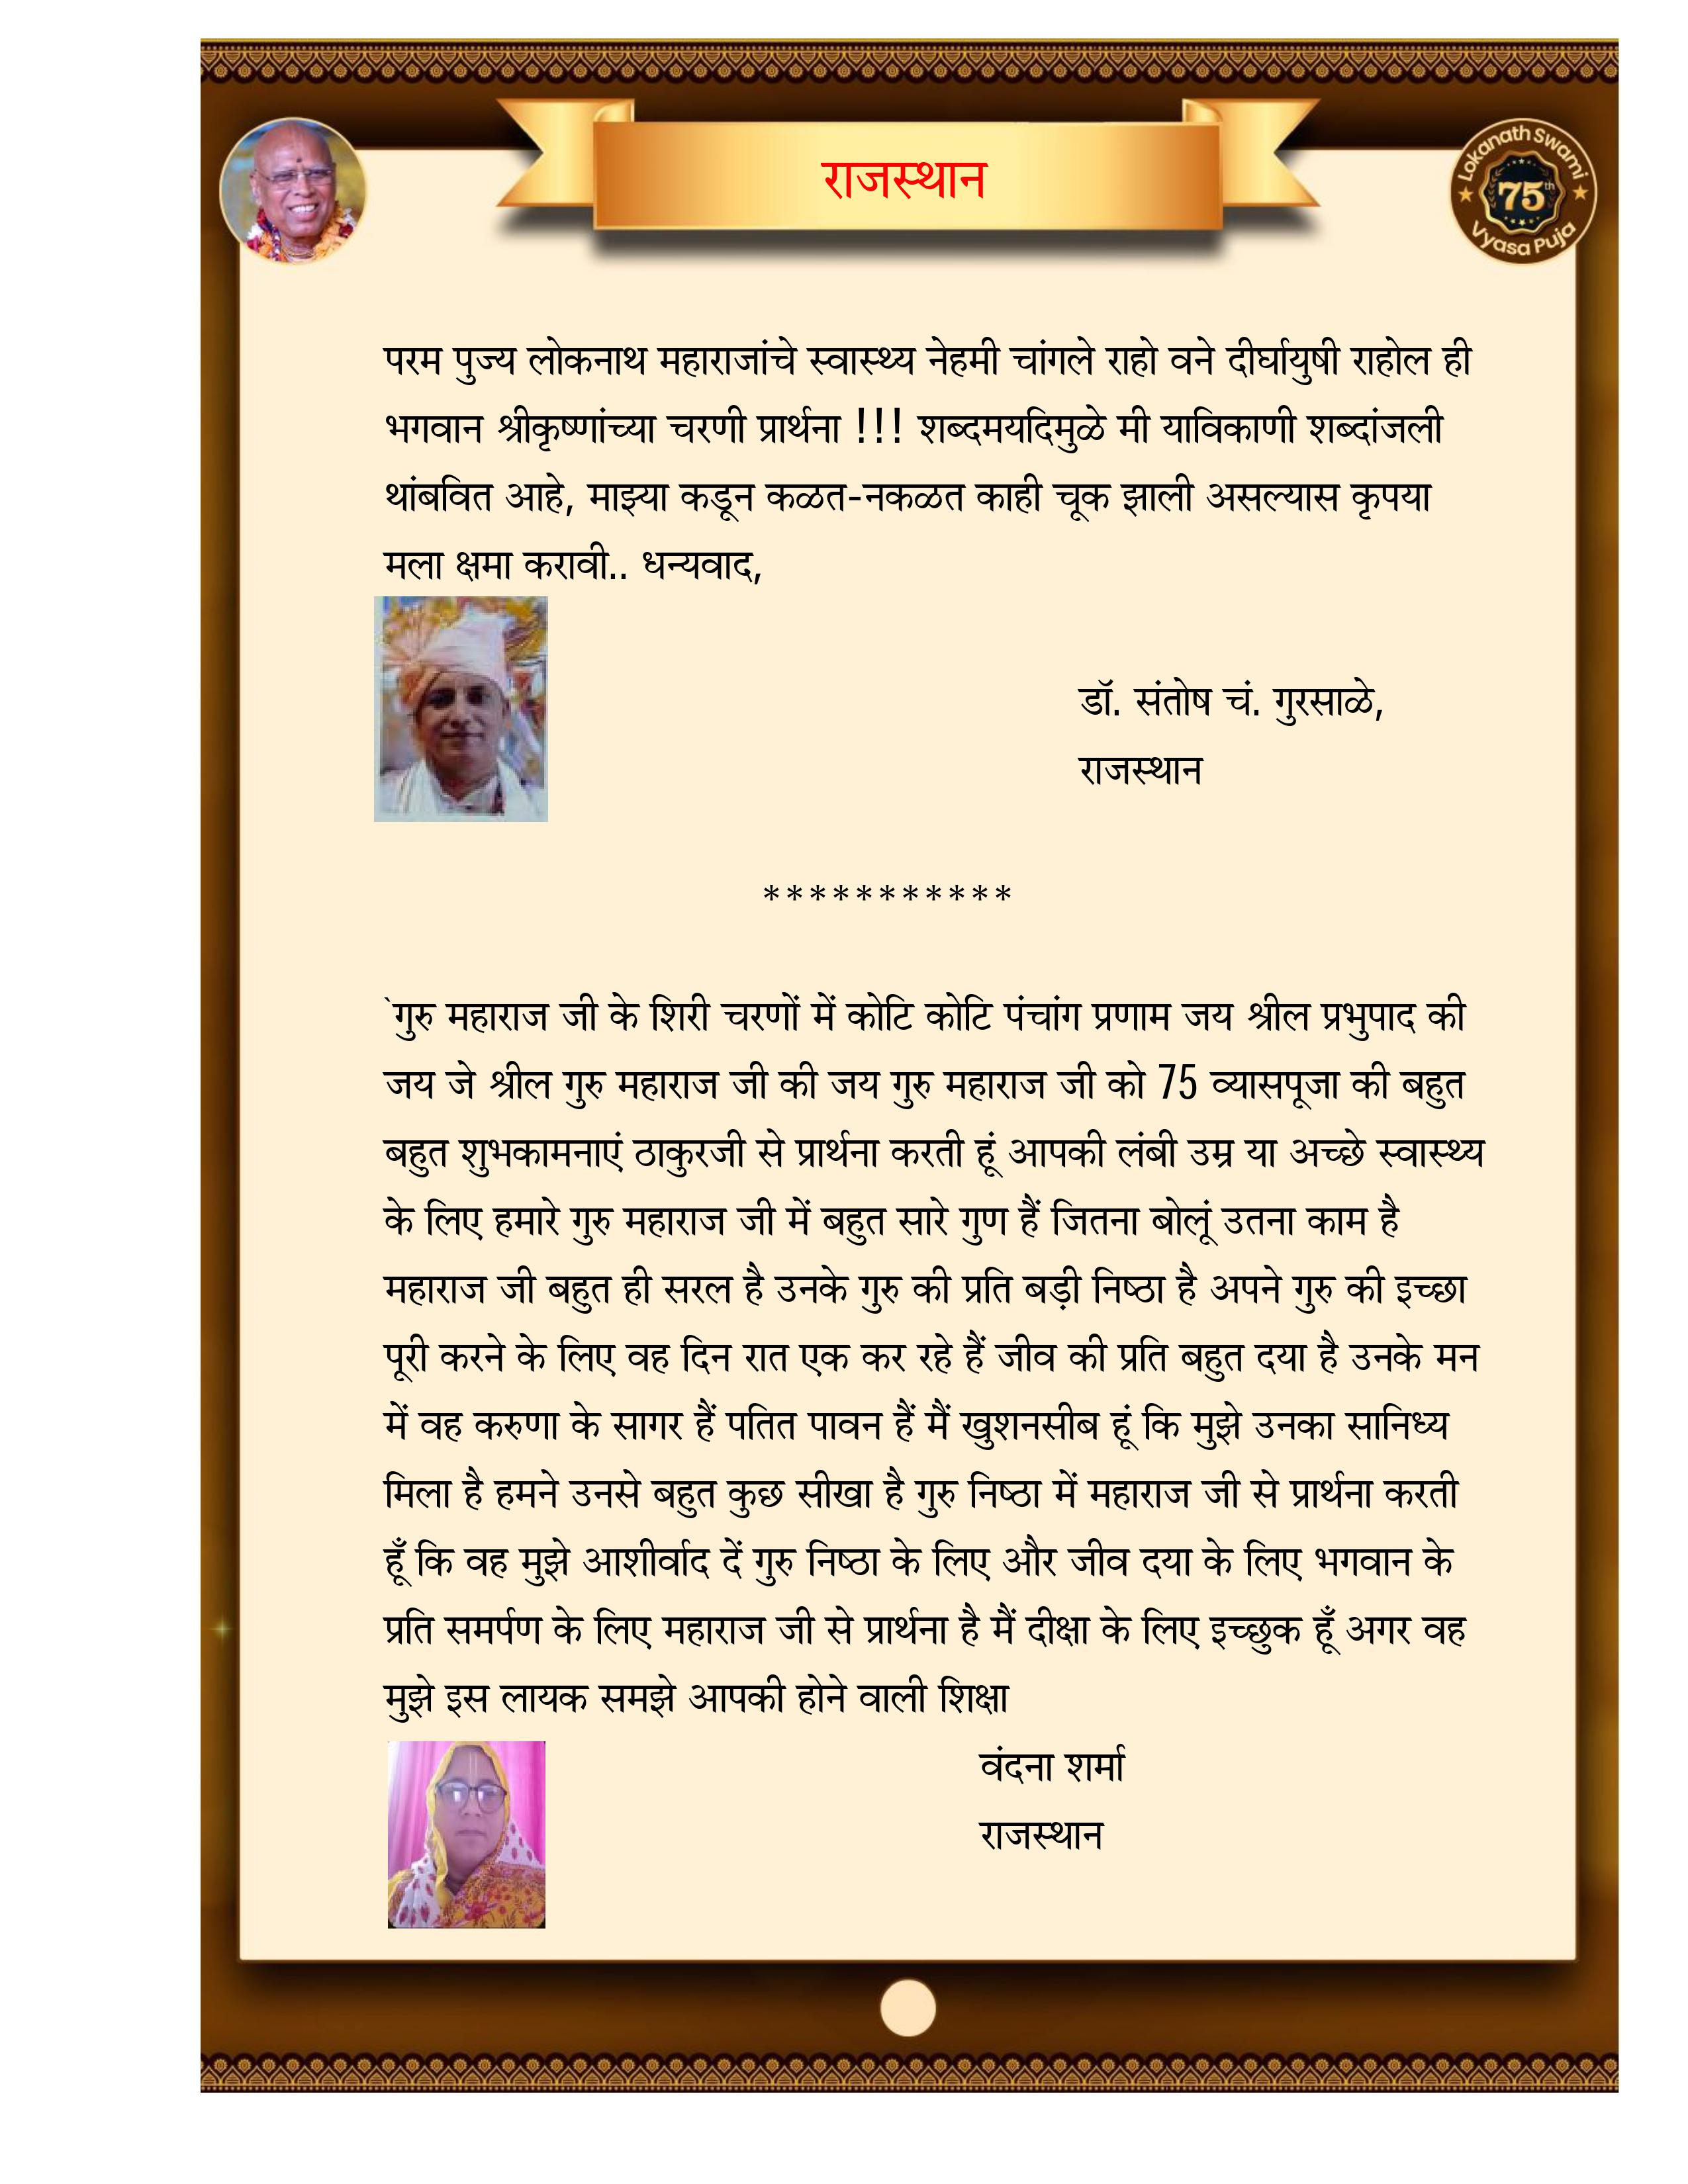 राजस्थान
Lokanath Swami
75th
Vyasa Puja
परम पुज्य लोकनाथ महाराजांचे स्वास्थ्य नेहमी चांगले राहो वने दीर्घायुषी राहोल ही
भगवान श्रीकृष्णांच्या चरणी प्रार्थना !!! शब्दमयदिमुळे मी याविकाणी शब्दांजली
थांबवित आहे, माझ्या कडून कळत-नकळत काही चूक झाली असल्यास कृपया
मला क्षमा करावी.. धन्यवाद,
डॉ. संतोष चं. गुरसाळे,
राजस्थान
***********
`गुरु महाराज जी के शिरी चरणों में कोटि कोटि पंचांग प्रणाम जय श्रील प्रभुपाद की
जय जे श्रील गुरु महाराज जी की जय गुरु महाराज जी को 75 व्यासपूजा की बहुत
बहुत शुभकामनाएं ठाकुरजी से प्रार्थना करती हूं आपकी लंबी उम्र या अच्छे स्वास्थ्य
के लिए हमारे गुरु महाराज जी में बहुत सारे गुण हैं जितना बोलूं उतना काम है
महाराज जी बहुत ही सरल है उनके गुरु की प्रति बड़ी निष्ठा है अपने गुरु की इच्छा
पूरी करने के लिए वह दिन रात एक कर रहे हैं जीव की प्रति बहुत दया है उनके मन
में वह करुणा के सागर हैं पतित पावन हैं मैं खुशनसीब हूं कि मुझे उनका सानिध्य
मिला है हमने उनसे बहुत कुछ सीखा है गुरु निष्ठा में महाराज जी से प्रार्थना करती
हूँ कि वह मुझे आशीर्वाद दें गुरु निष्ठा के लिए और जीव दया के लिए भगवान के
प्रति समर्पण के लिए महाराज जी से प्रार्थना है मैं दीक्षा के लिए इच्छुक हूँ अगर वह
मुझे इस लायक समझे आपकी होने वाली शिक्षा
वंदना शर्मा
राजस्थान